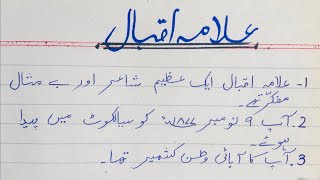 علامہ اقبال
1- علامہ اقبال ایک عظیم شاعر اور بے مثال
مفکر تھے۔
2. آپ ۹ نومبر ۱۸۷۷ء کو سیالکوٹ میں پیدا
ہوئے۔
3. آپ کا آبائی وطن کشمیر تھا۔